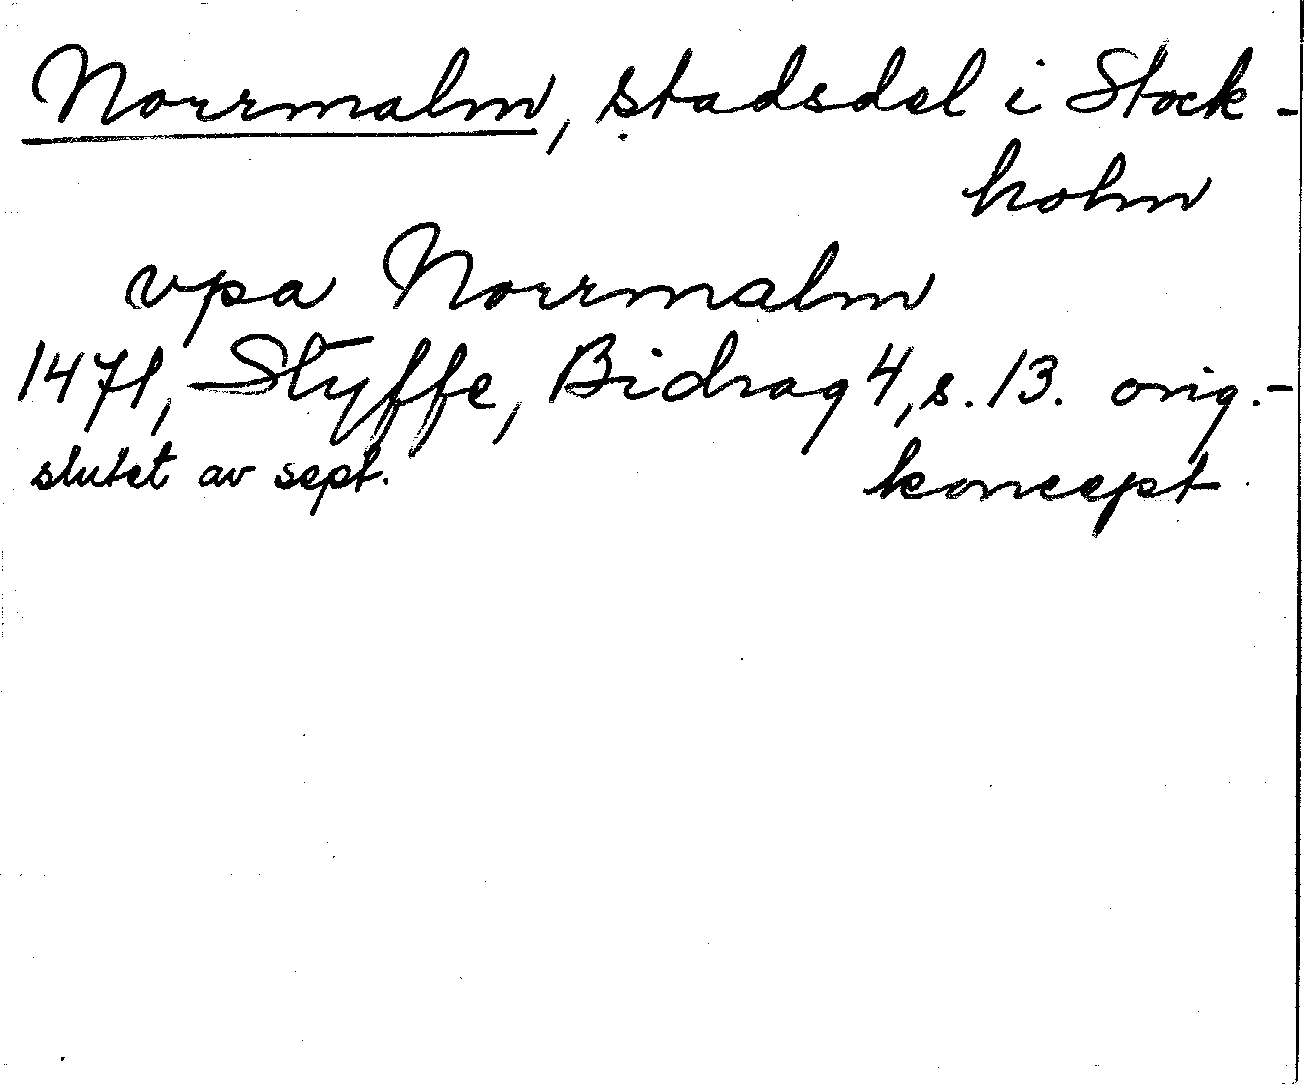 Norrmalm, stadsdel i Stock-
holm
vpa Norrmalm
1471, Styffe, Bidrag 4, s. 13. orig.-
slutet av sept. koncept